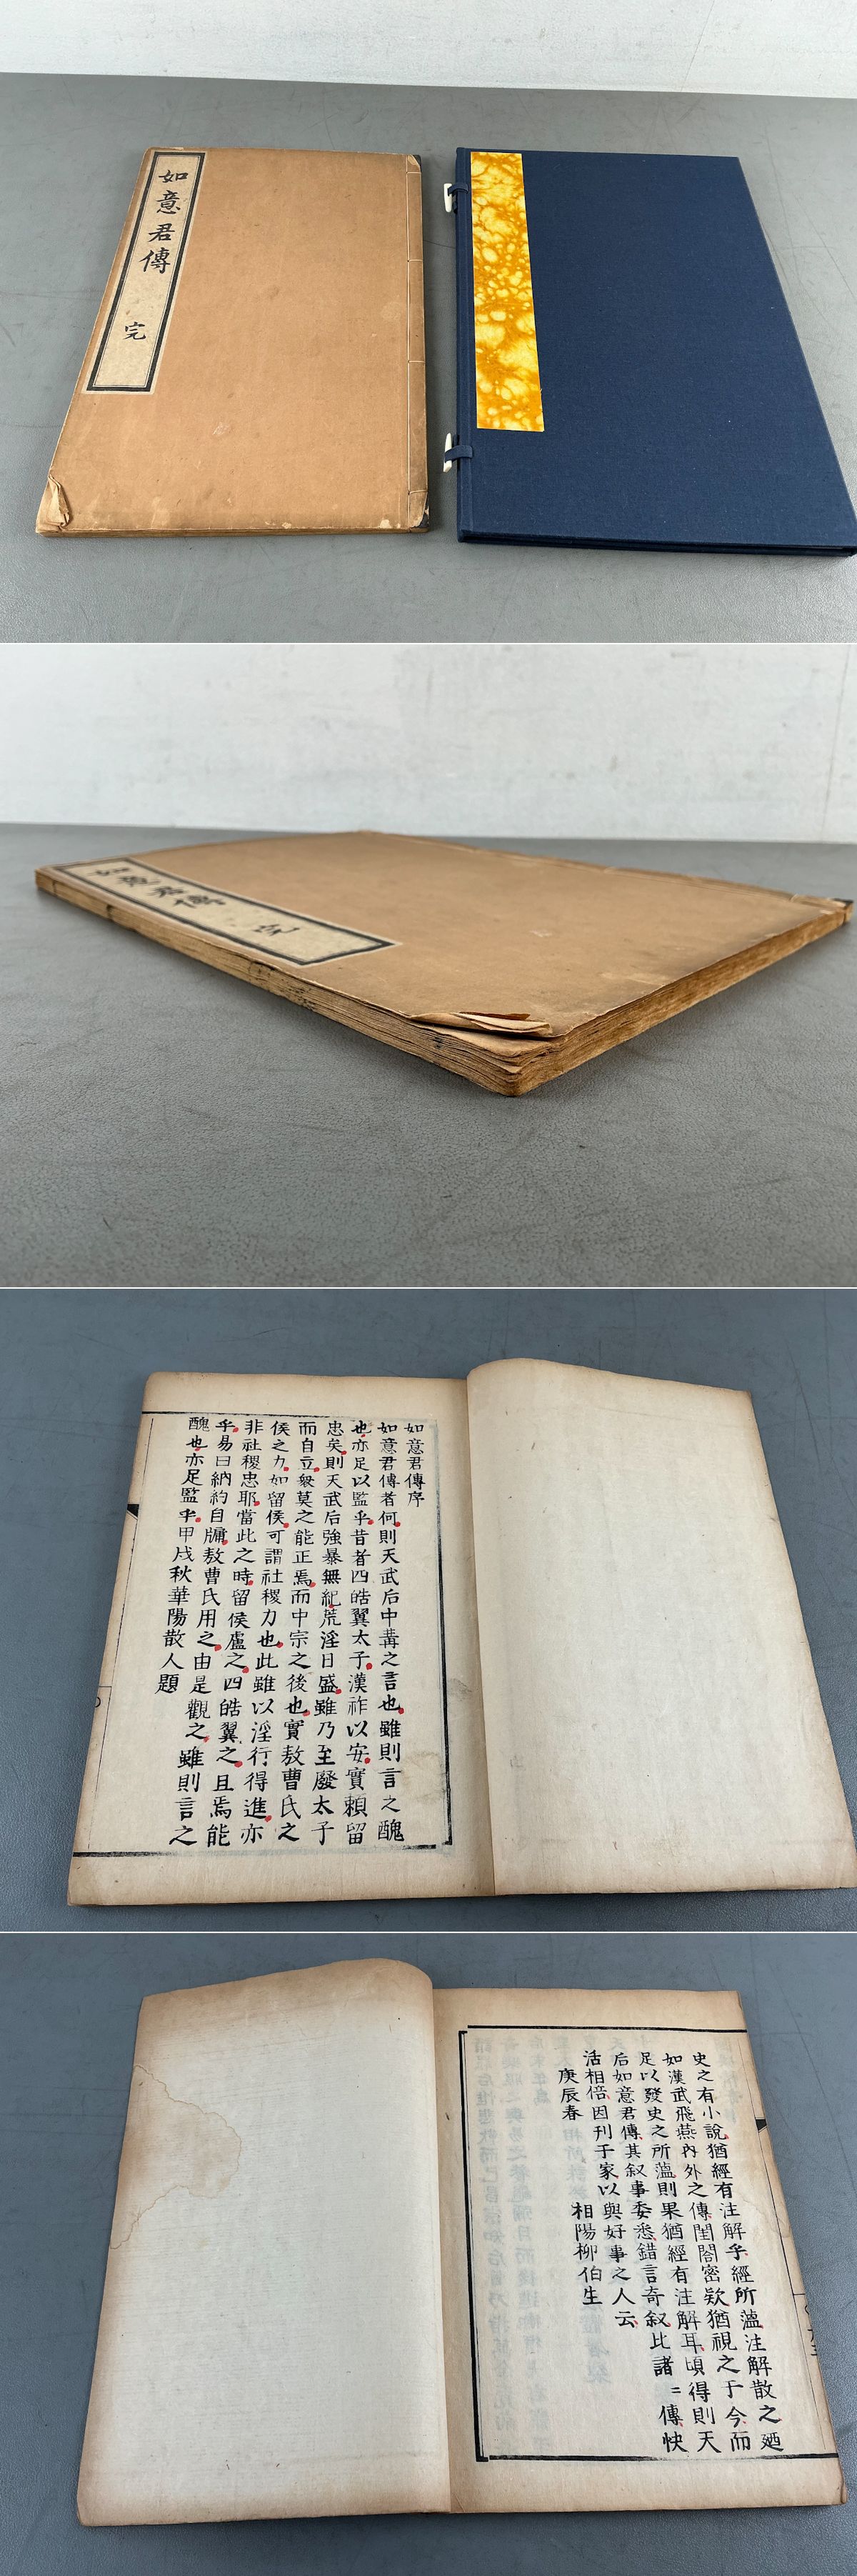 如意君傳
完
如意君傳
完
如意君傳序
如意君傳者何則天武后中冓之言也雖則言之醜
也亦足以監乎昔者四皓翼太子漢祚以安實賴留
忠矣則天武后強暴無紀荒淫日盛雖乃至廢太子
而自立眾莫之能正焉而中宗之後也實敖曹氏之
侯之力如留侯可謂社稷力也此雖以淫行得進亦
非社稷忠耶當此之時留侯盧之四皓翼之且焉能
乎易曰納約自牖敖曹氏用之由是觀之雖則言之
醜也亦足監乎甲戌秋華陽散人題
史之有小說猶經有注解乎經所蘊注解散之廼
如漢武飛燕內外之傳閨閤密欵猶視之于今而
足以發史之所蘊則果猶經有注解耳頃得則天
后如意君傳其叙事委悉錯言奇叙比諸二傳快
活相倍因刊于家以與好事之人云
庚辰春
相陽柳伯生